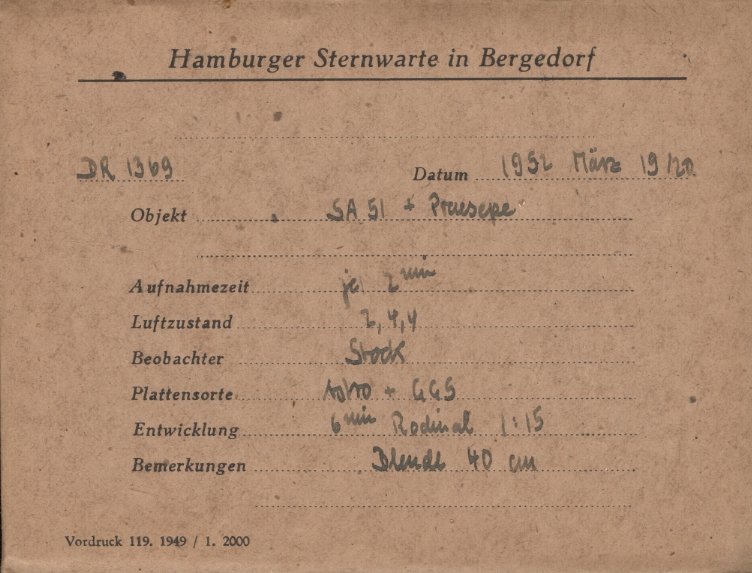 Hamburger Sternwarte in Bergedorf
DR 1369 Datum 1952 März 19/20
Objekt SA 51 + Praesepe
Aufnahmezeit je 2 min
Luftzustand 2,4,4
Beobachter Stock
Plattensorte Astro + GG5
Entwicklung 6 min Rodinal 1:15
Bemerkungen Blende 40 cm
Vordruck 119. 1949 / 1. 2000